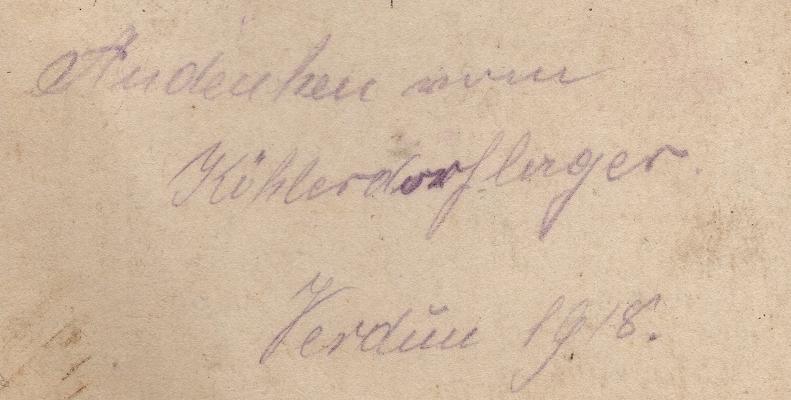 Andenken vom
Köhlerdorflager.
Verdun 1918.